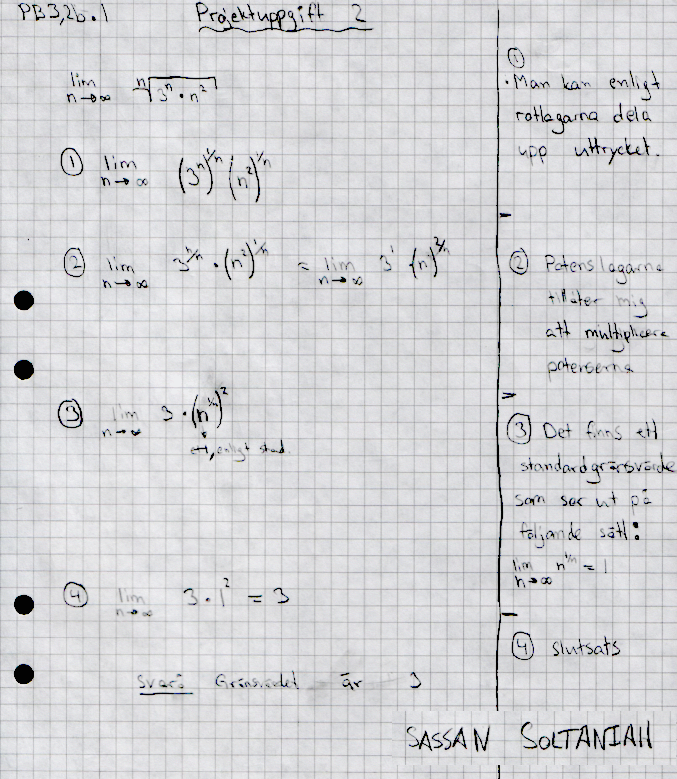 PB3,2b.1
Projektuppgift 2
lim n→∞ ⁿ√(3ⁿ · n²)
① lim n→∞ (3ⁿ)^1/n (n²)^1/n
② lim n→∞ 3^n/n · (n²)^1/n = lim n→∞ 3¹ (n)^2/n
③ lim n→∞ 3 · (n^1/n)²
ett, enligt stand.
④ lim n→∞ 3 · 1² = 3
Svar: Gränsvärdet är 3
①
· Man kan enligt
rotlagarna dela
upp uttrycket.
② Potenslagarna
tillåter mig
att multiplicera
potenserna
③ Det finns ett
standardgränsvärde
som ser ut på
följande sätt:
lim n→∞ n^1/n = 1
④ slutsats
SASSAN SOLTANIAH